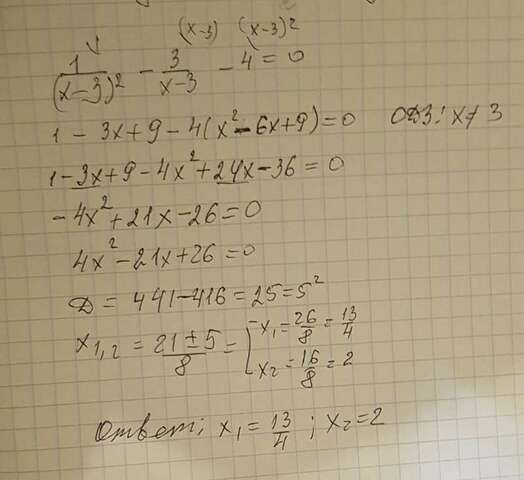 (x-3) (x-3)²
1/(x-3)² - 3/(x-3) - 4 = 0
1 - 3x + 9 - 4(x² - 6x + 9) = 0 ОДЗ: x ≠ 3
1 - 3x + 9 - 4x² + 24x - 36 = 0
-4x² + 21x - 26 = 0
4x² - 21x + 26 = 0
D = 441 - 416 = 25 = 5²
x₁,₂ = (21 ± 5)/8 = [ x₁ = 26/8 = 13/4
x₂ = 16/8 = 2
Ответ: x₁ = 13/4 ; x₂ = 2